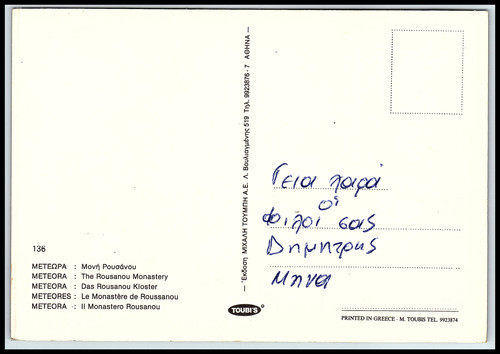 136
ΜΕΤΕΩΡΑ : Μονή Ρουσάνου
METEORA : The Rousanou Monastery
METEORA : Das Rousanou Kloster
METEORES : Le Monastère de Roussanou
METEORA : Il Monastero Rousanou
— Έκδοση ΜΙΧΑΛΗ ΤΟΥΜΠΗ Α.Ε. Λ. Βουλιαγμένης 519 Τηλ. 9923876 - 7 ΑΘΗΝΑ —
TOUBI'S
Γεια χαρά
οι
φιλοι σας
Δημητρης
Μηνα
PRINTED IN GREECE - M. TOUBIS TEL. 9923874